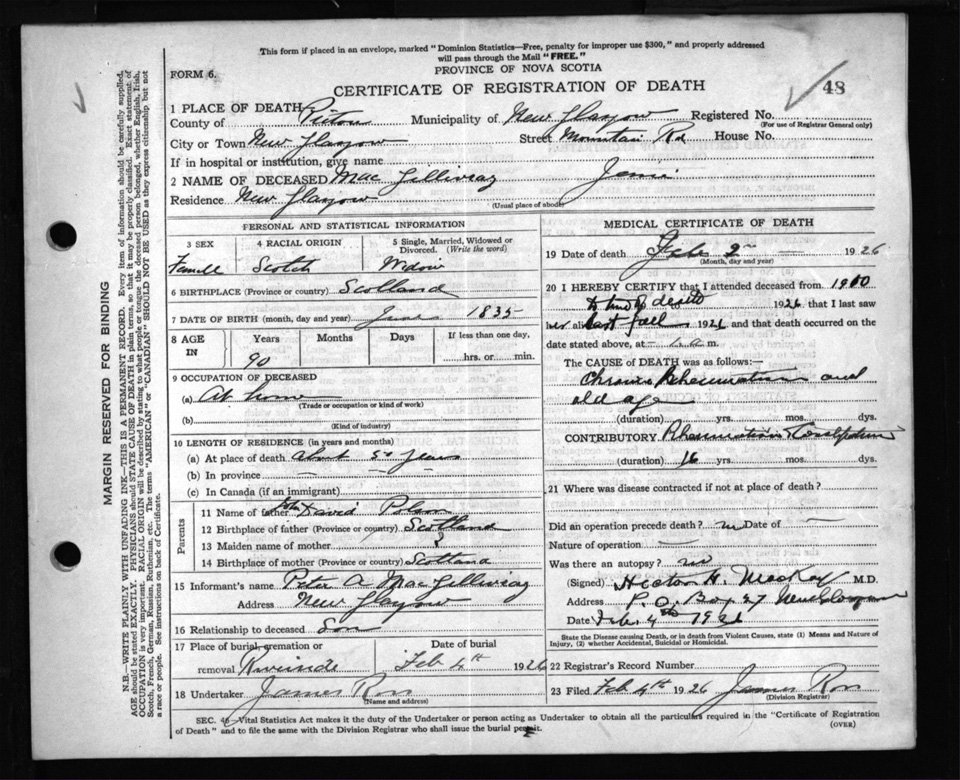 This form if placed in an envelope, marked "Dominion Statistics—Free, penalty for improper use $300," and properly addressed
will pass through the Mail "FREE."
PROVINCE OF NOVA SCOTIA
FORM 6.
CERTIFICATE OF REGISTRATION OF DEATH
48
1 PLACE OF DEATH
County of Pictou Municipality of New Glasgow Registered No.
(For use of Registrar General only)
City or Town New Glasgow Street Mountain Rd House No.
If in hospital or institution, give name
2 NAME OF DECEASED MacGillivray
Residence New Glasgow
(Usual place of abode)
PERSONAL AND STATISTICAL INFORMATION
3 SEX 4 RACIAL ORIGIN 5 Single, Married, Widowed or Divorced. (Write the word)
Scotch
6 BIRTHPLACE (Province or country) Scotland
7 DATE OF BIRTH (month, day and year) June 1835
8 AGE IN Years Months Days If less than one day,
90 hrs. or min.
9 OCCUPATION OF DECEASED
(a) At home
(Trade or occupation or kind of work)
(b)
(Kind of industry)
10 LENGTH OF RESIDENCE (in years and months)
(a) At place of death years
(b) In province — —
(c) In Canada (if an immigrant)
Parents
11 Name of father David Polson
12 Birthplace of father (Province or country) Scotland
13 Maiden name of mother ?
14 Birthplace of mother (Province or country) Scotland
15 Informant's name Peter A MacGillivray
Address New Glasgow
16 Relationship to deceased Son
17 Place of burial, cremation or Date of burial
removal Riverside Feb 4th 1926
18 Undertaker James Ross
(Name and address)
MEDICAL CERTIFICATE OF DEATH
19 Date of death Feb 2 — 1926
(Month, day and year)
20 I HEREBY CERTIFY that I attended deceased from
to time of death 1926 that I last saw
her alive last fall and that death occurred on the
date stated above, at a.m.
The CAUSE OF DEATH was as follows:—
Chronic Rheumatism and
old age
(duration) yrs. mos. dys.
CONTRIBUTORY Rheumatism
(duration) 16 yrs. mos. dys.
21 Where was disease contracted if not at place of death?
Did an operation precede death? no Date of —
Nature of operation —
Was there an autopsy? no
(Signed) Hector H. MacKay M.D.
Address P.O. Box 27 New Glasgow
Date Feb. 4th 1926
State the Disease causing Death, or in death from Violent Causes, state (1) Means and Nature of
Injury, (2) whether Accidental, Suicidal or Homicidal.
22 Registrar's Record Number
23 Filed Feb 4th 1926 James Ross
(Division Registrar)
SEC. Vital Statistics Act makes it the duty of the Undertaker or person acting as Undertaker to obtain all the particulars required in the "Certificate of Registration
of Death" and to file the same with the Division Registrar who shall issue the burial permit. (OVER)
MARGIN RESERVED FOR BINDING
N.B.—WRITE PLAINLY WITH UNFADING INK—THIS IS A PERMANENT RECORD. Every item of information should be carefully supplied.
AGE should be stated EXACTLY. PHYSICIANS should STATE CAUSE OF DEATH in plain terms, so that it may be properly classified. Exact statement of
OCCUPATION is very important. RACIAL ORIGIN will be described by stating to what people or tongue the deceased person belonged, whether English, Irish,
Scotch, French, German, Russian, Ruthenian, etc. The terms "AMERICAN" or "CANADIAN" SHOULD NOT BE USED as they express citizenship but not
a race or people. See instructions on back of Certificate.